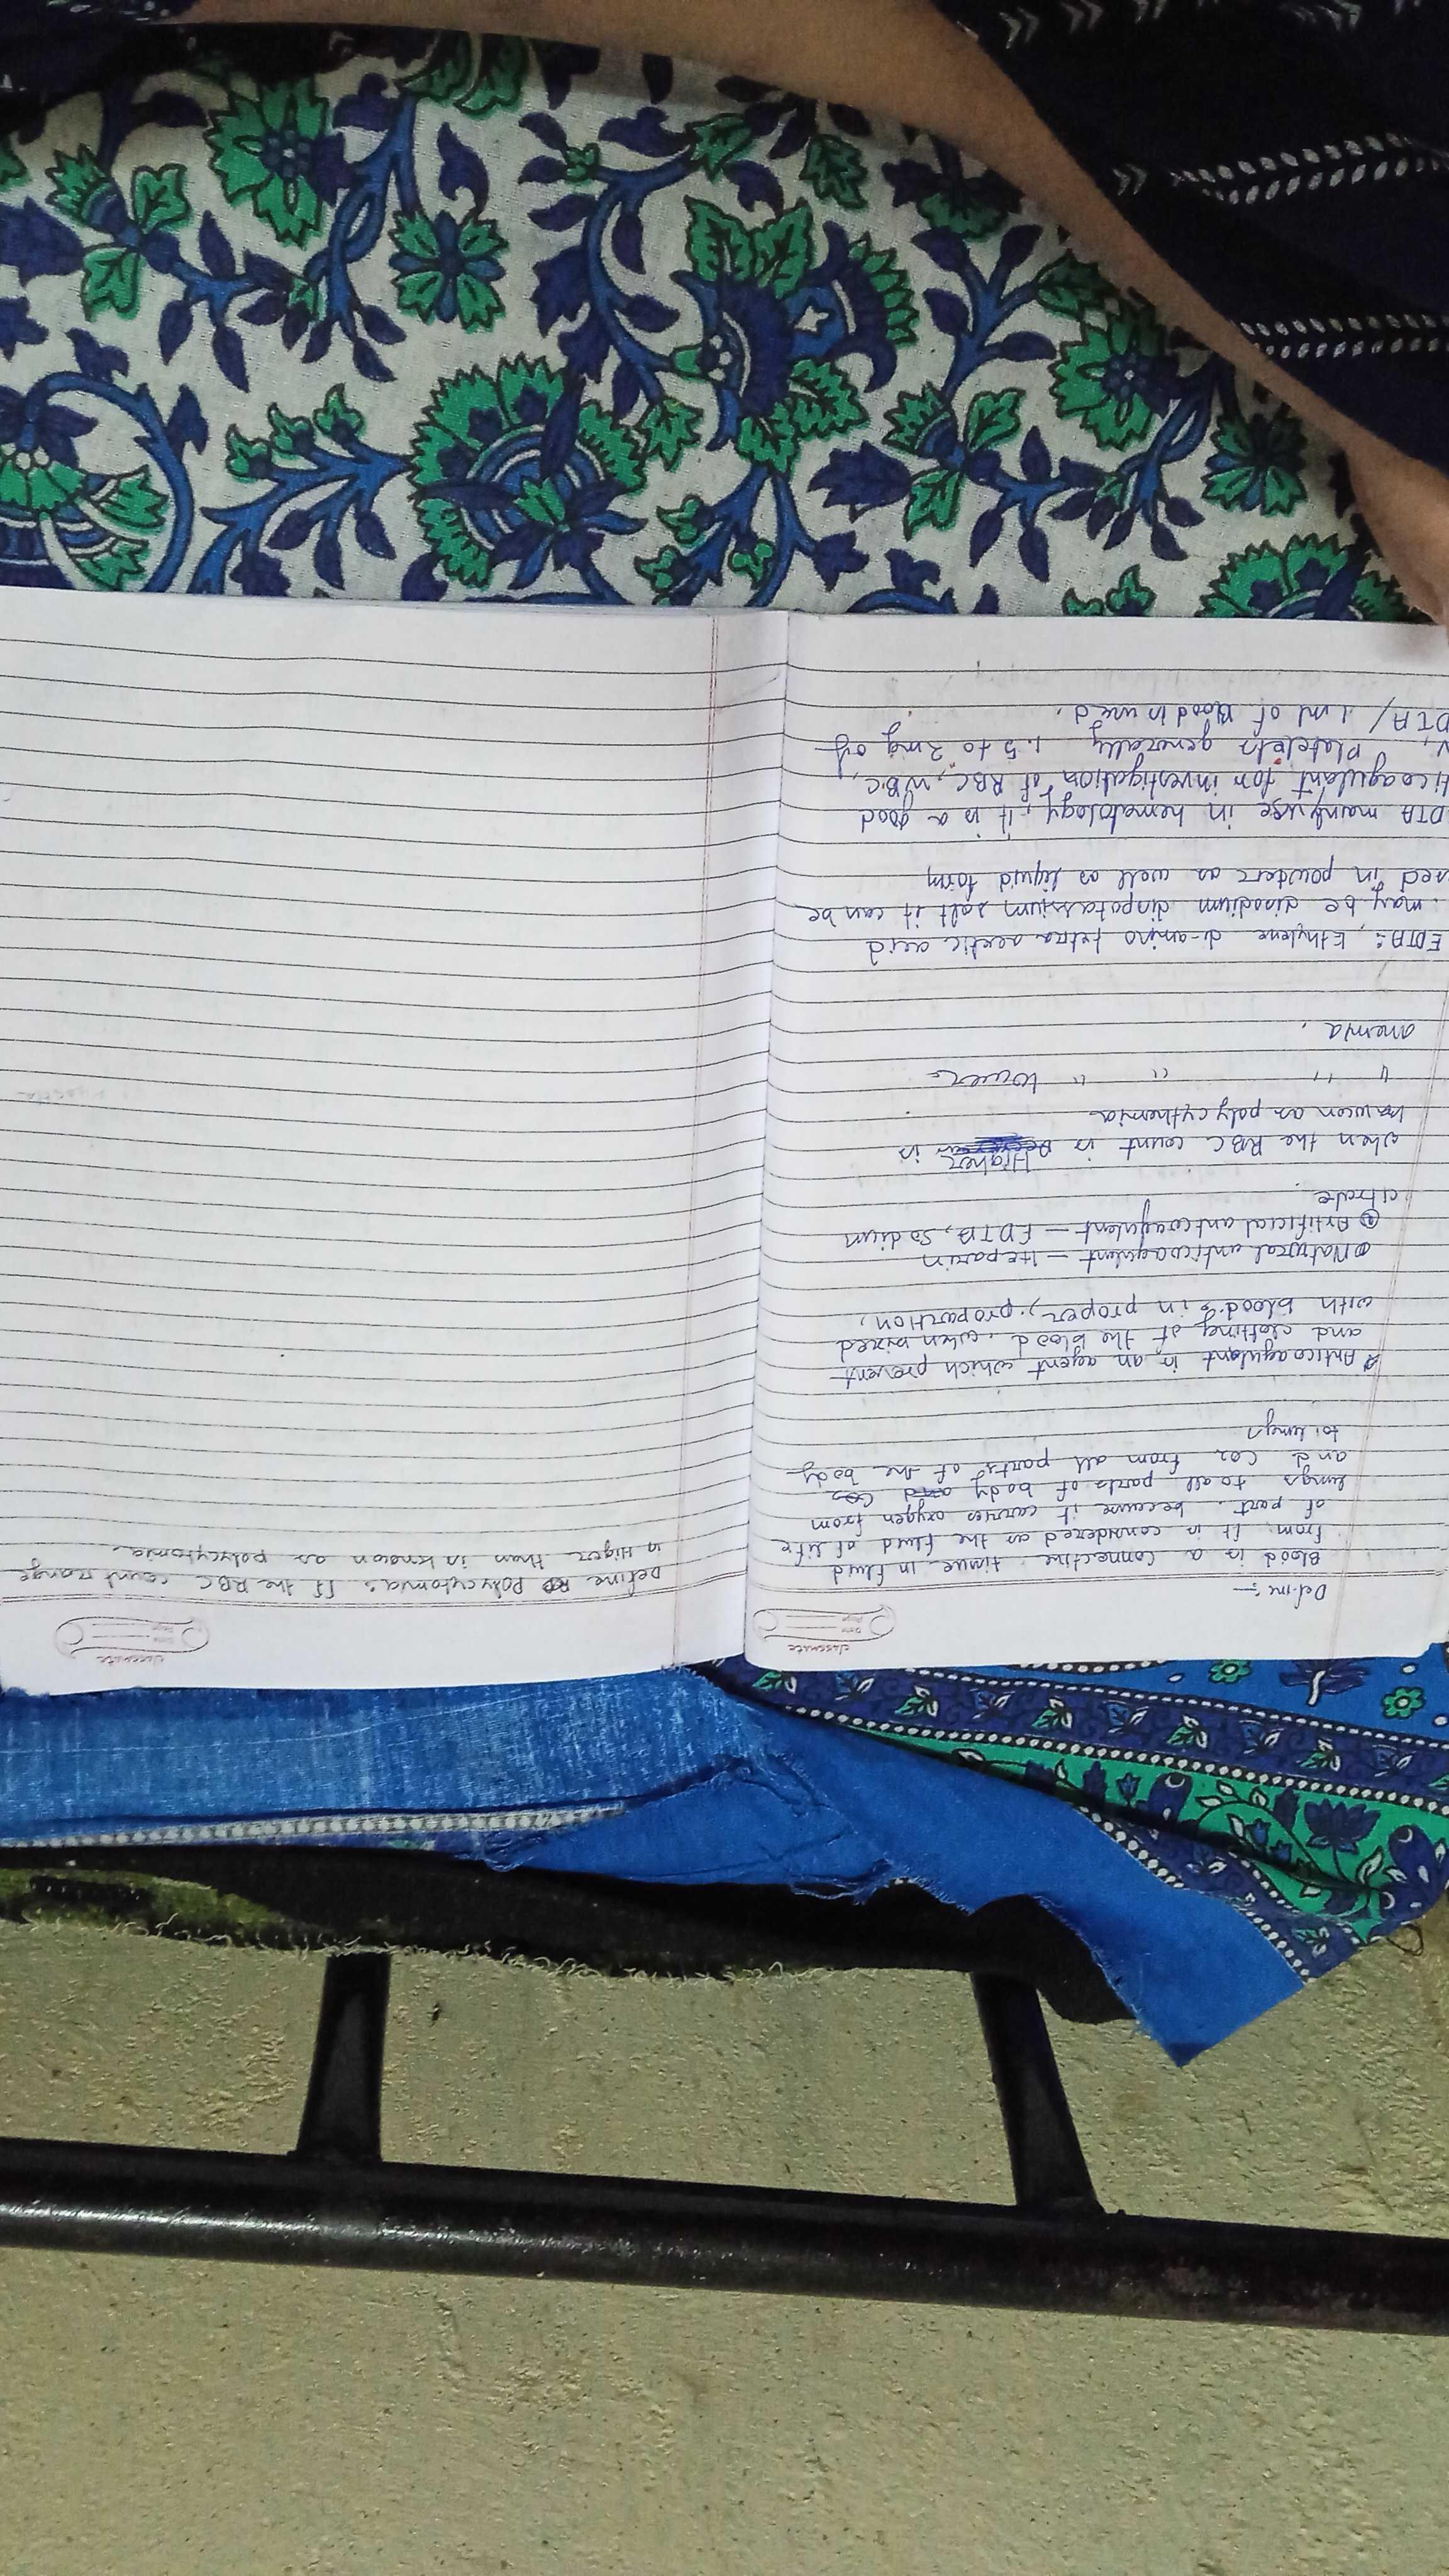 classmate
Date
Page
Define :-
Blood is a connective tissue in fluid
from. It is considered as the fluid of life
of part. because it carries oxygen from
lungs to all parts of body and Co2
and Co2 from all parts of the body
to lungs
Anticoagulant is an agent which prevent
and clotting of the blood. when mixed
with blood in proper, proportion,
① Natural anticoagulent - Heparin
② Artificial anticoagulent - EDTA, Sodium
citrate.
when the RBC count is Higher is
known as polycythemia
" " " " lower
anemia.
EDTA: Ethylene di-amino tetra acetic acid
may be disodium dipotassium salt it can be
sed in powder as well as liquid form
DTA mainly use in hemetology, it is a good
ticoagulant for investigation of RBC, WBC,
V, Platelets generally 1.5 to 2 mg of
DTA / 1 ml of Blood is used.
classmate
Date
Page
Define Polycytomia: If the RBC count range
is Higer than is known as polycytomia.